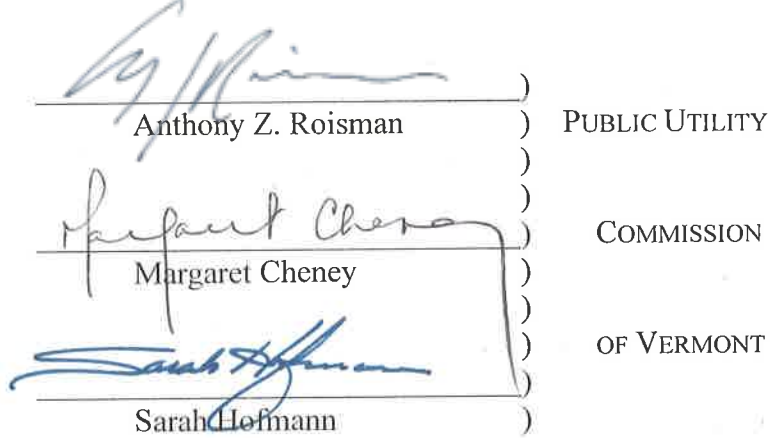 )
Anthony Z. Roisman ) PUBLIC UTILITY
)
)
Margaret Cheney ) COMMISSION
Margaret Cheney )
)
) OF VERMONT
Sarah Hofmann )
Sarah Hofmann )